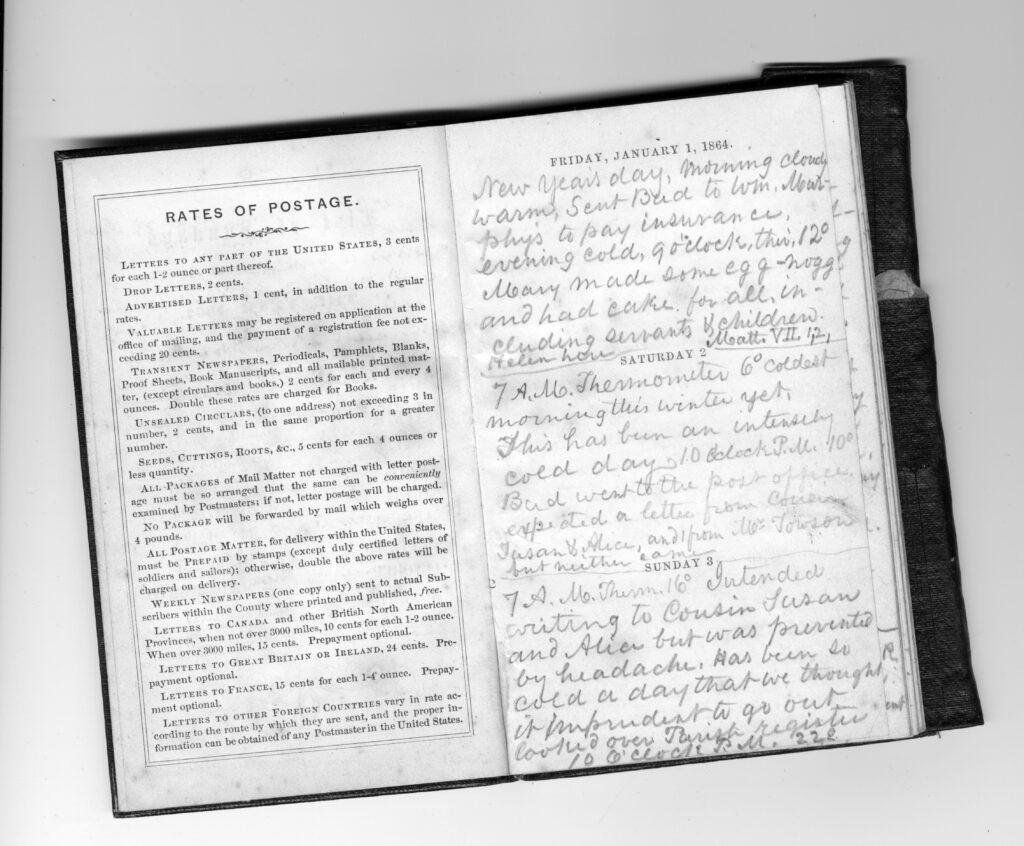 RATES OF POSTAGE.
LETTERS TO ANY PART OF THE UNITED STATES, 3 cents
for each 1-2 ounce or part thereof.
DROP LETTERS, 2 cents.
ADVERTISED LETTERS, 1 cent, in addition to the regular
rates.
VALUABLE LETTERS may be registered on application at the
office of mailing, and the payment of a registration fee not ex-
ceeding 20 cents.
TRANSIENT NEWSPAPERS, Periodicals, Pamphlets, Blanks,
Proof Sheets, Book Manuscripts, and all mailable printed mat-
ter, (except circulars and books,) 2 cents for each and every 4
ounces. Double these rates are charged for Books.
UNSEALED CIRCULARS, (to one address) not exceeding 3 in
number, 2 cents, and in the same proportion for a greater
number.
SEEDS, CUTTINGS, ROOTS, &C., 5 cents for each 4 ounces or
less quantity.
ALL PACKAGES of Mail Matter not charged with letter post-
age must be so arranged that the same can be conveniently
examined by Postmasters; if not, letter postage will be charged.
NO PACKAGE will be forwarded by mail which weighs over
4 pounds.
ALL POSTAGE MATTER, for delivery within the United States,
must be PREPAID by stamps (except duly certified letters of
soldiers and sailors); otherwise, double the above rates will be
charged on delivery.
WEEKLY NEWSPAPERS (one copy only) sent to actual Sub-
scribers within the County where printed and published, free.
LETTERS TO CANADA and other British North American
Provinces, when not over 3000 miles, 10 cents for each 1-2 ounce.
When over 3000 miles, 15 cents. Prepayment optional.
LETTERS TO GREAT BRITAIN OR IRELAND, 24 cents. Pre-
payment optional.
LETTERS TO FRANCE, 15 cents for each 1-4 ounce. Prepay-
ment optional.
LETTERS TO OTHER FOREIGN COUNTRIES vary in rate ac-
cording to the route by which they are sent, and the proper in-
formation can be obtained of any Postmaster in the United States.
FRIDAY, JANUARY 1, 1864.
New Year's day, morning cloudy
warm, Sent Bud to Wm. Mur-
phy's to pay insurance,
evening cold, 9 o'clock, ther, 12°
Mary made some egg-nogg
and had cake for all, in-
cluding servants & children.
Helen Matt. VII. 12,
SATURDAY 2
7 A. M. Thermometer 6° coldest
morning this winter yet,
This has been an intensely
cold day, 10 O'clock P.M. 10°
Bud went to the post office
expected a letter from Cousin
Susan & Alice, and from Mr Towson
but neither came
SUNDAY 3
7 A. M. Therm. 16° Intended
writing to Cousin Susan
and Alice but was prevented
by headache. Has been so
cold a day that we thought
it imprudent to go out
looked over Parish register
10 O'clock P. M. 22°